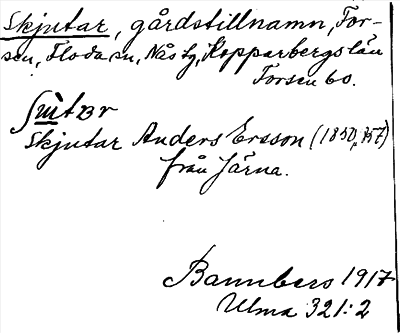 Skjutar, gårdstillnamn, For-
sen, Floda sn, Nås tg, Kopparbergs län
Forsen 60.
Skjutar Anders Ersson (1850, 57)
från Järna.
Bannbers 1917
Ulma 321:2